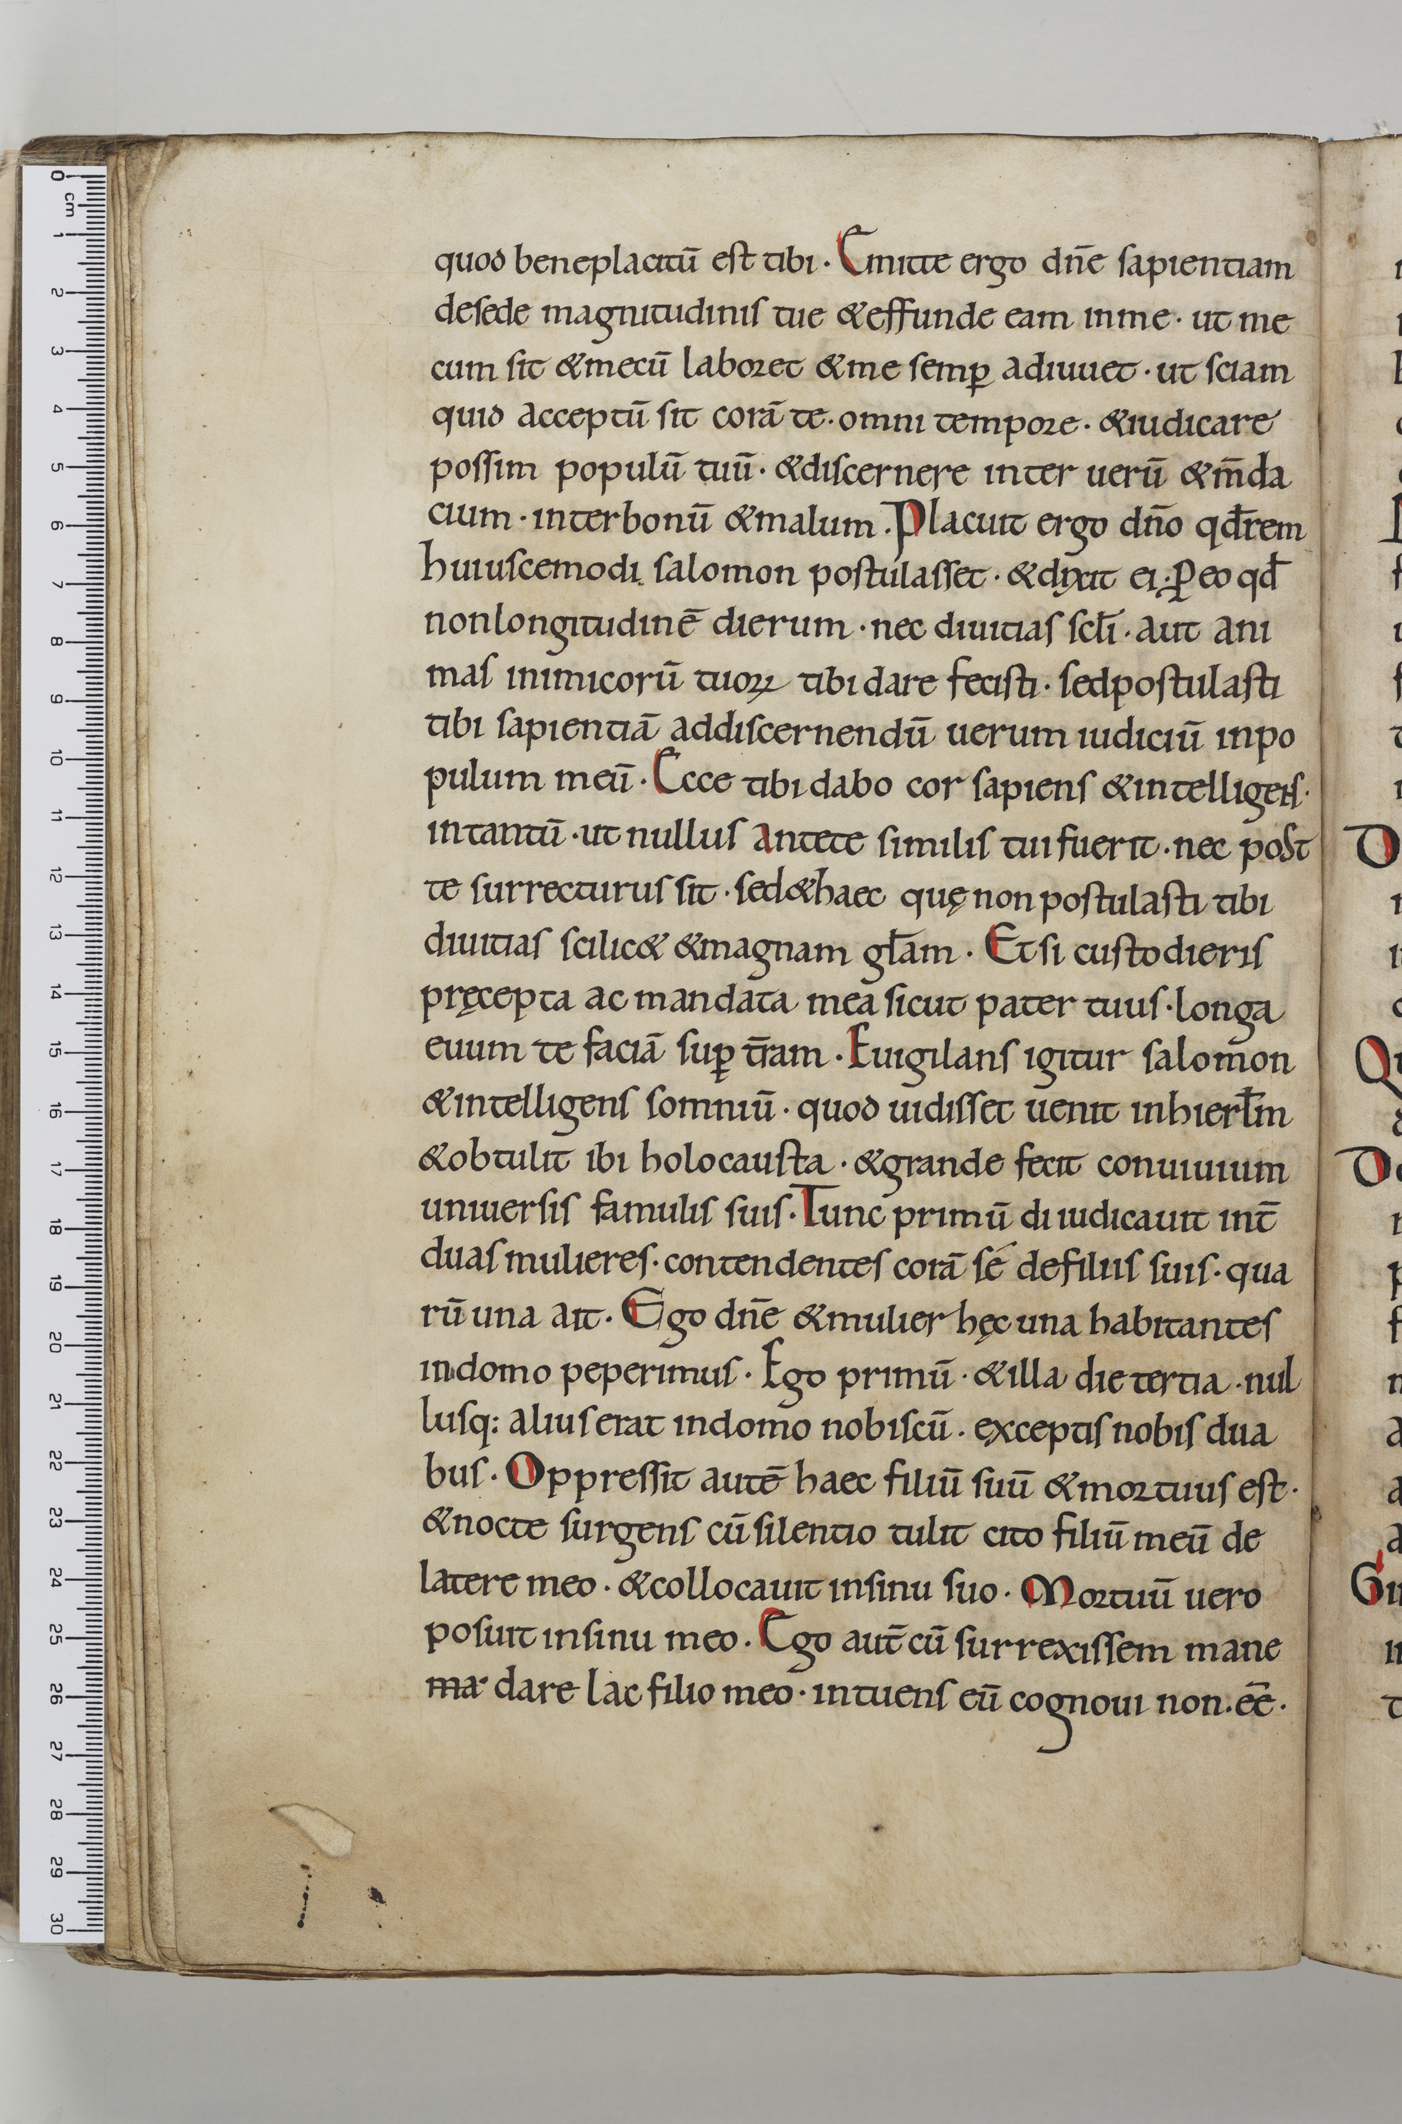 quod beneplacitū est tibi · Emitte ergo dn̄e sapientiam
desede magnitudinis tue &effunde eam inme · ut me
cum sit &mecū laboret &me semꝑ adiuuet · ut sciam
quid acceptū sit corā te · omni tempore · &iudicare
possim populū tuū · &discernere inter uerū &m̄da
cium · interbonū &malum . Placuit ergo dn̄o qđ rem
huiuscemodi salomon postulasset · &dixit ei · P̱ eo qđ
nonlongitudinē dierum · nec diuitias scl̄i · aut ani
mas inimicorū tuoꝝ tibi dare fecisti · sedpostulasti
tibi sapientiā addiscernendū uerum iudiciū inpo
pulum meū · Ecce tibi dabo cor sapiens &intelligens ·
intantū · ut nullus antete similis tui fuerit · nec post
te surrecturus sit · sed&haec quę non postulasti tibi
diuitias scilic& &magnam gl̄am · Et si custodieris
pręcepta ac mandata mea sicut pater tuus · longa
euum te faciā suꝑ t̄ram · Euigilans igitur salomon
&intelligens somniū · quod uidisset uenit inhierl̄m
&obtulit ibi holocausta · &grande fecit conuiuium
uniuersis famulis suis · Tunc primū diiudicauit int̄
duas mulieres · contendentes corā sé defiliis suis · qua
rū una ait · Ego dn̄e &mulier hęc una habitantes
indomo peperimus · Ego primū · &illa die tertia · nul
lusq: alius erat indomo nobiscū · exceptis nobis dua
bus · Oppressit autē haec filiū suū &mortuus est ·
&nocte surgens cū silentio tulit cito filiū meū de
latere meo · &collocauit insinu suo · Mortuū uero
posuit insinu meo · Ego aut̄ cū surrexissem mane
ma dare lac filio meo · intuens eū cognoui non · eē ·